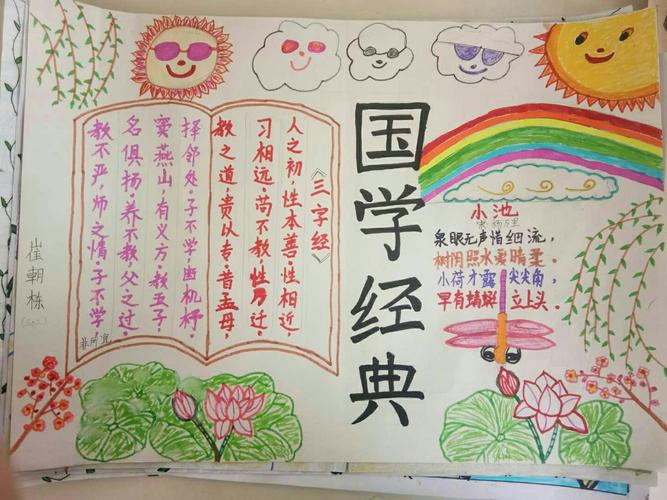 国学经典
《三字经》
人之初,性本善.性相近,
习相远.苟不教,性乃迁.
教之道.贵以专.音孟母,
择邻处.子不学,断机杼.
窦燕山,有义方,教五子,
名俱扬.养不教,父之过.
教不严,师之情.子不学,
非所宜.
崔朝栋
(三.二)
小池
宋·杨万里
泉眼无声惜细流,
树阴照水爱晴柔.
小荷才露尖尖角,
早有蜻蜓立上头.